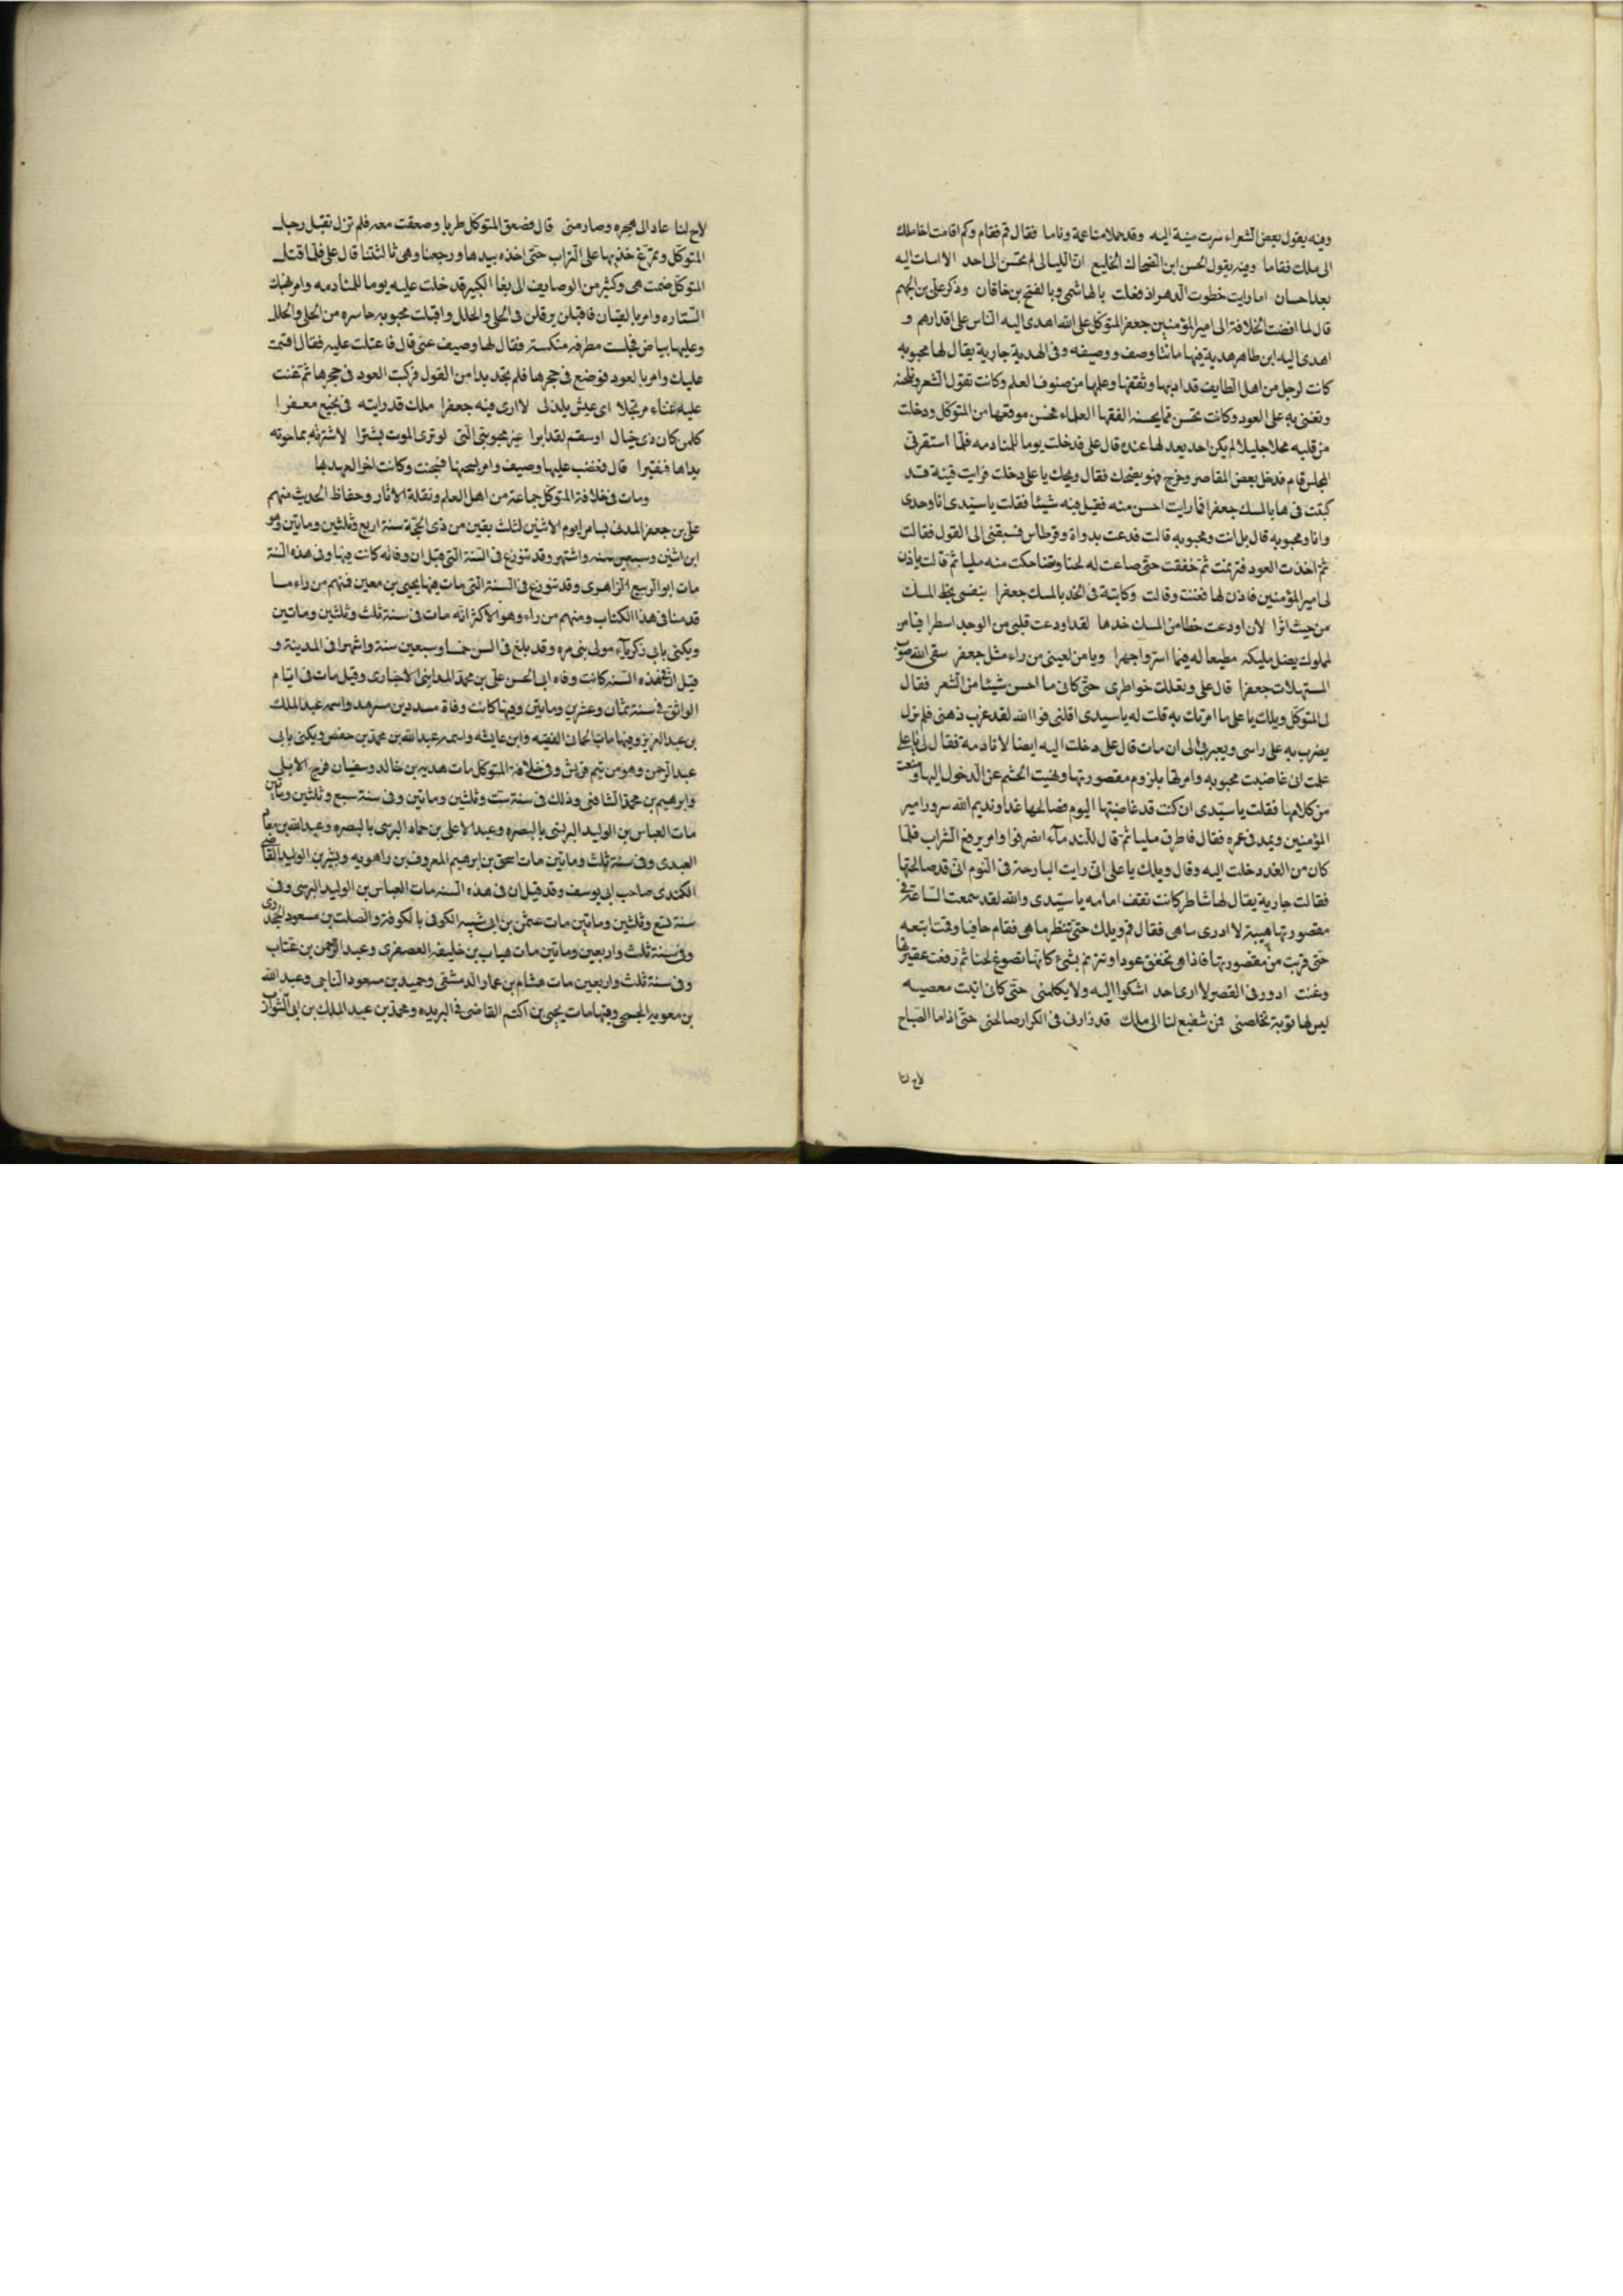 وفيه يقول بعض الشعراء سرت منية اليه وقد حلا منا عمة وناما فقال قم فقام وكم اقامت اخا ملك
الى ملك فقاما وفيه يقول الحسن ابن الضحاك الخليع ان الليالى لم تحسن الى احد الا اسات اليه
بعد احسان اما رايت خطوت الدهر اذ فعلت بالهاشمى وبالفتح بن خاقان وذكر على بن الجهم
قال لما افضت الخلافة الى امير المؤمنين جعفر المتوكل على الله اهدى اليه الناس على اقدارهم و
اهدى اليه ابن طاهر هدية فيها مائتا وصف ووصيفه وفى الهدية جارية يقال لها محبوبه
كانت لرجل من اهل الطايف قد ادبها وثقفها وعلمها من صنوف العلم وكانت تقول الشعر وتلحنه
وتغنى به على العود وكانت تحسن كما يحسنه الفقها العلماء فحسن موقعها من المتوكل ودخلت
من قلبه محلا جليلا لم يكن احد يعد لها عنده قال على فدخلت يوما للمنادمه فلما استقر بى
المجلس قام فدخل بعض المقاصر وخرج وهو يضحك فقال ويحك يا على دخلت فرايت قينة قد
كبتت فى ها بالمسك جعفرا فما رايت احسن منه فقيل فيه شيئا فقلت يا سيدى انا وحدى
وانا ومحبوبه قال بل انت ومحبوبه قالت فدعت بدواة وقرطاس فسبقنى الى القول فقالت
ثم اخذت العود فترنمت ثم خفقت حتى صاعت له لحنا وتضاحكت منه مليا ثم قالت ياذن
لى امير المؤمنين فاذن لها فغنت وقالت وكاتبة فى الخد بالمسك جعفرا بنفسى يخط المسك
من حيث اثرا لان اودعت خطا من المسك خدها لقد اودعت قلبى من الوجد اسطرا فيا من
لمملوك يضل مليكه مطيعا له فيما استر واجهرا ويا من لعينى من راء مثل جعفر سقى الله صوب
المستهلات جعفرا قال على ونقلت خواطرى حتى كانى ما احسن شيئا من الشعر فقال
لى المتوكل ويلك يا على ما امرتك به قلت له يا سيدى اقلنى فوالله لقد عزب ذهنى فلم يزل
يضرب به على راسى ويعيرنى الى ان مات قال على دخلت اليه ايضا لانادمه فقال لى يا على
علمت انى غاضبت محبوبه وامرتها بلزوم مقصورتها ونهيت الحشم عن الدخول اليها ومنعت
من كلامها فقلت يا سيدى ان كنت قد غاضبتها اليوم فصالحها غدا ونديم الله سرور امير
المؤمنين ويمد فى عمره فقال فاطرق مليا ثم قال للندمآء انصرفوا وامر يرفع الشراب فلما
كان من الغد دخلت اليه وقال ويلك يا على انى رايت البارحة فى النوم انى قد صالحتها
فقالت جارية يقال لها شاطر كانت تقف امامه يا سيدى والله لقد سمعت الساعة فى
مقصورتها هيبة لا ادرى ما هى فقال قم ويلك حتى تنظر ما هى فقام حافيا وقت ابتعه
حتى قربت من مقصورتها فاذا هى تخفق عودا وترنم بشئ كانها تصوغ لحنا ثم رفعت عقيرتها
وغنت ادور فى القصر لا ارى احد اشكوا اليه ولا يكلمنى حتى كانى اتيت معصيه
ليس لها توبة تخلصنى فمن شفيع لنا الى ملك قد زارنى فى الكرا رصالحنى حتى اذا ما الصباح
لاح لنا
لاح لنا عاد الى هجره وصارمنى قال فصعق المتوكل طربا وصعقت معه فلم تزل تقبل رجل
المتوكل وتمرغ خديها على التراب حتى اخذه بيدها ورجعنا وهى ثالثتنا قال على فلما قتل
المتوكل ضمت هى وكثير من الوصايف الى بغا الكبير قد خلت عليه يوما للمنادمه وامر بهتك
الستاره وامر بالقيان فاقبلن يرفلن فى الحلى والحلل واقبلت محبوبه حاسره من الحلى والحلل
وعليها بياض فجلست مطرفه منكسة فقال لها وصيف غنى قال فاعتلت عليه فقال اقسمت
عليك وامر بالعود فوضع فى حجرها فلم تجد بدا من القول فركبت العود فى حجرها ثم تغنت
عليه غناء مرتجلا اى عيش يلذلى لا ارى فيه جعفرا ملك قد رايته فى نجيع معفرا
كلمن كان ذى خيال او سقم لقد ابرا غير محبوبتى التى لو ترى الموت يشترا لاشترته بما حوته
يداها فتقبرا قال فغضب عليها وصيف وامر بسجنها فسجنت وكانت اخر العهد بها
ومات فى خلافة المتوكل جماعة من اهل العلم ونقلة الاثار وحفاظ الحديث منهم
على بن جعفر المدنى بسامرا يوم الاثنين لثلث بقين من ذى الحجة سنة اربع وثلثين وماتين وهو
ابن اثنين وسبعين سنه واشهر وقد تنوزع فى السنة التى قبل ان وفاته كانت فيها وفى هذه السنة
مات ابو الربيع الزاهرى وقد تنوزع فى السنة التى مات فيها يحيى بن معين فمنهم من راء ما
قدمنا فى هذا الكتاب ومنهم من راء وهو الاكثر انه مات فى سنة ثلث وثلثين وماتين
ويكنى بابى ذكريآء مولى بنى مره وقد بلغ فى السن خمسا وسبعين سنة واشهرا فى المدينة و
قيل ان فى هذه السنه كانت وفاه ابى الحسن على بن محمد المداينى الاخبارى وقيل مات فى ايام
الواثق فى سنة ثمان وعشرين وماتين وفيها كانت وفاة مسدد بن مسرهد واسمه عبد الملك
بن عبد العزيز وفيها مات الحانى الفقيه وابن عايشه واسمه عبد الله بن محمد بن حفص ويكنى بابى
عبد الرحمن وهو من تيم قريش وفى خلافة المتوكل مات هدبه بن خالد وسفيان فرج الابلى
وابرهيم بن محمد الشافنى وذلك فى سنة ست وثلثين وماتين وفى سنة سبع وثلثين وماتين
مات العباس بن الوليد البرنى بالبصره وعبد الاعلى بن حماد البرسى بالبصره وعبد الله بن معاذ
العبدى وفى سنة ثلث وماتين مات اسحق بن ابرهيم المعروف بن راهويه وبشر بن الوليد القاضى
الكندى صاحب ابى يوسف وقد قيل ان فى هذه السنه مات العباس بن الوليد البرسى وفى
سنة تسع وثلثين وماتين مات عثمن بن ابى شيبه الكوفى بالكوفة والصلت بن مسعود الجحدرى
وفى سنة ثلث واربعين وماتين مات هباب بن خليفه العصفرى وعبد الرحمن بن عتاب
وفى سنة ثلث واربعين مات هشام بن عمار الدمشقى وحميد بن مسعود الناجى وعبد الله
بن معويه الجمحى وفيها مات يحيى بن اكثم القاضى فى البريده ومحمد بن عبد الملك بن ابى الشوارب